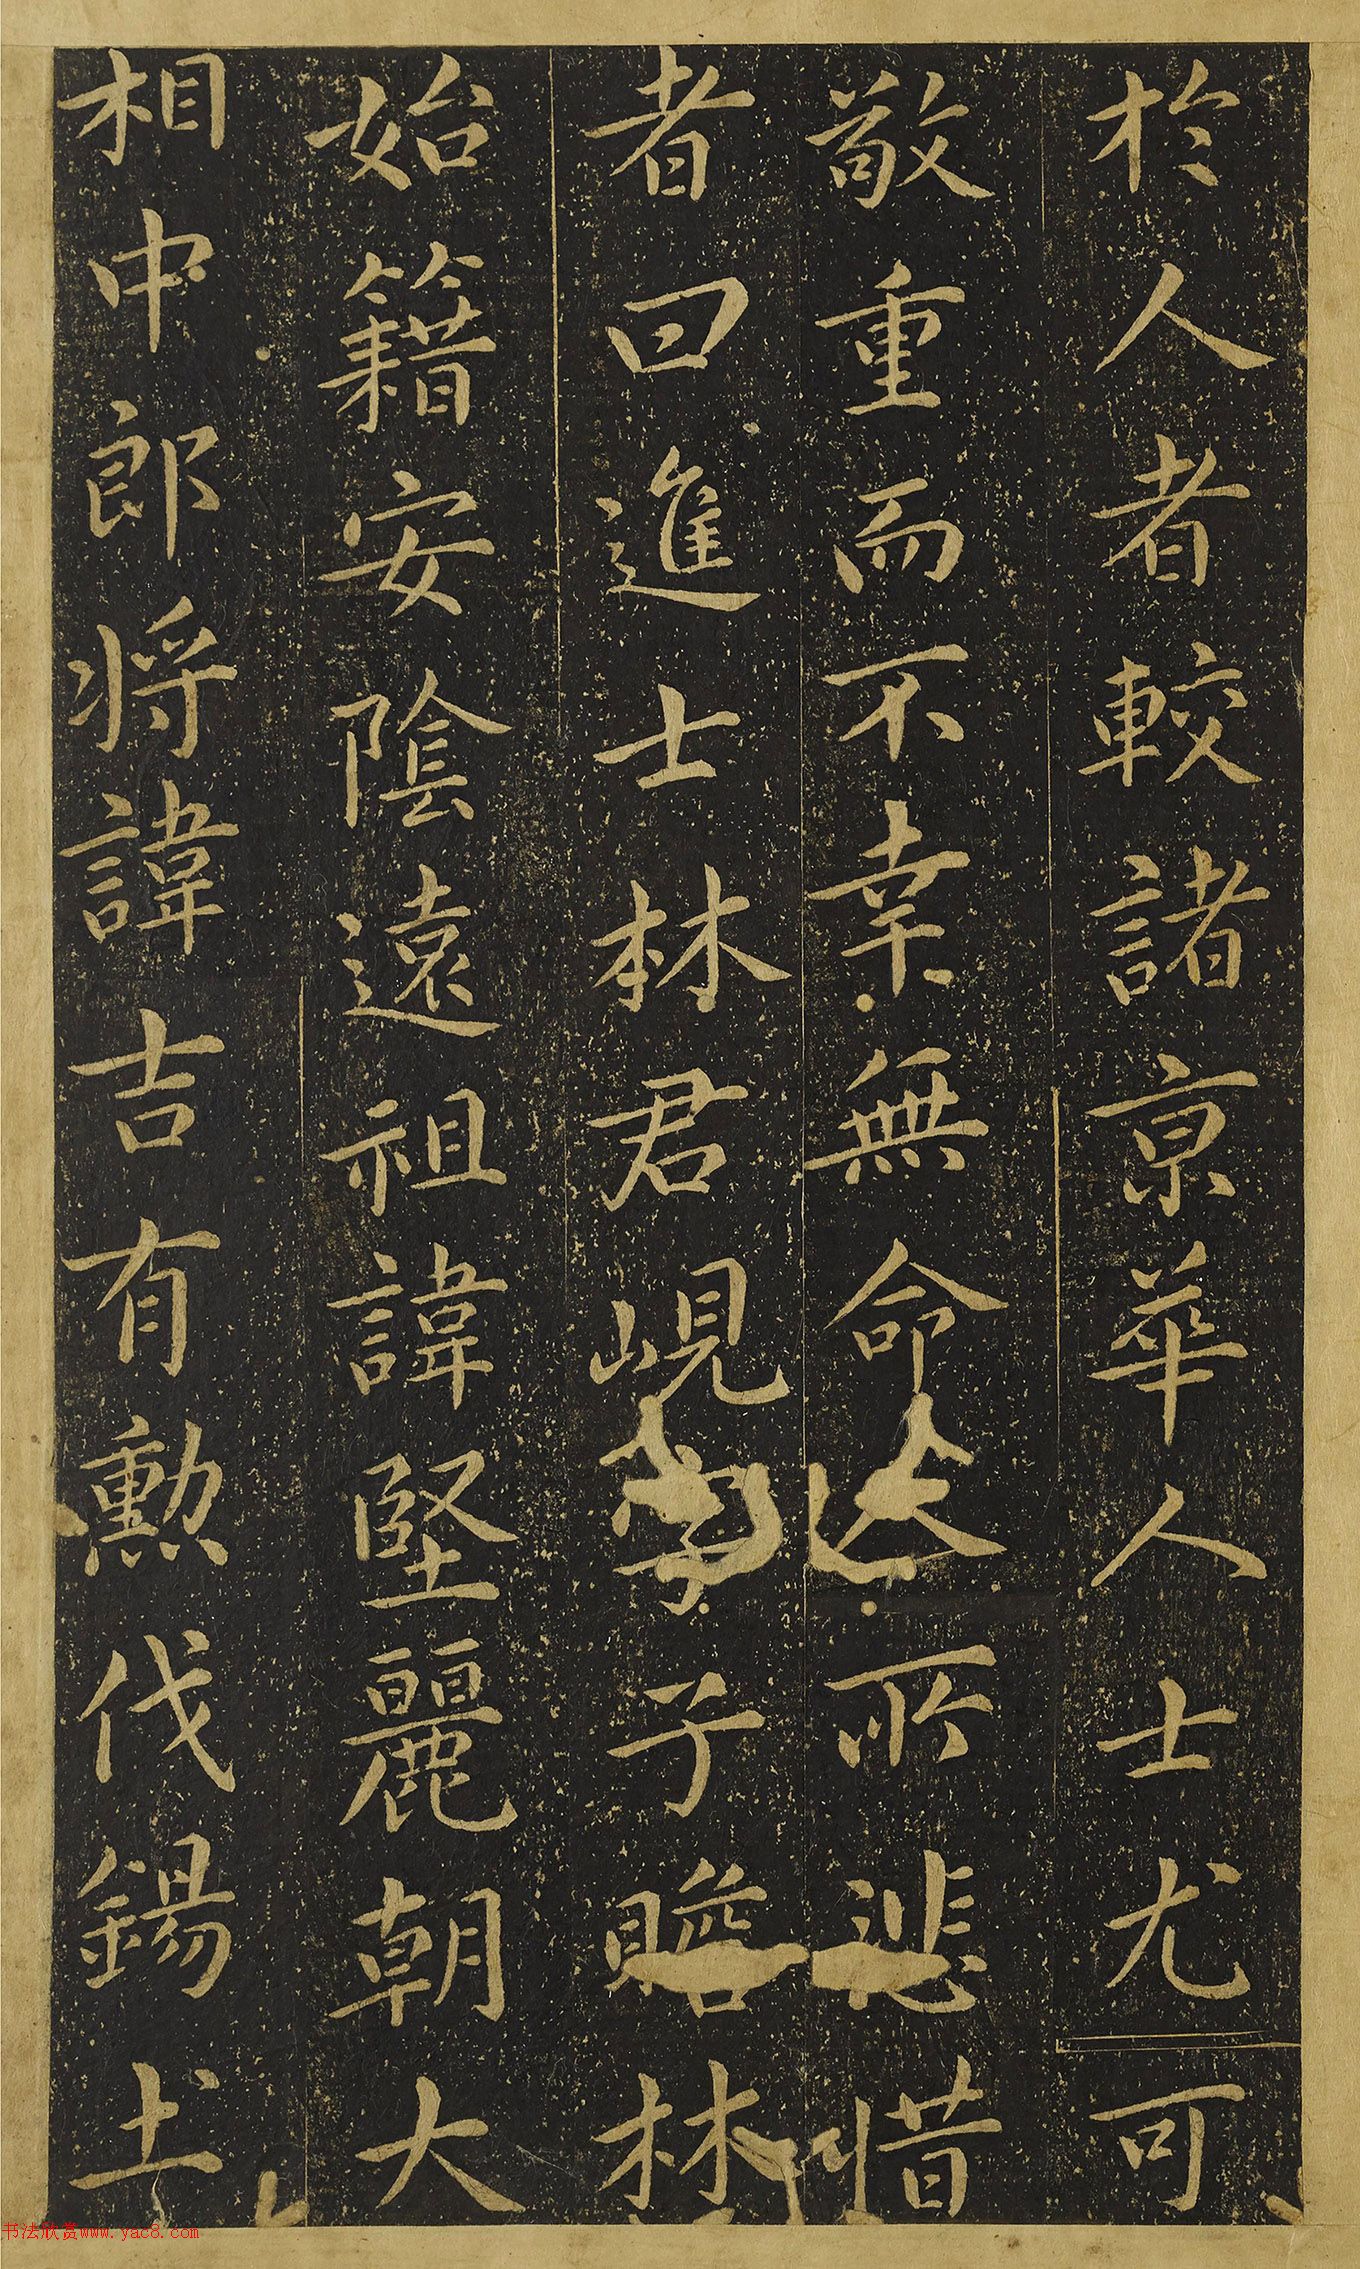 於人者較諸京華人士尤可
敬重而不幸無命大所悲惜
者曰進士林君峴字子瞻林
始籍安陰遠祖諱堅麗朝大
相中郎將諱吉有勳伐錫土
书法欣赏www.yac8.com